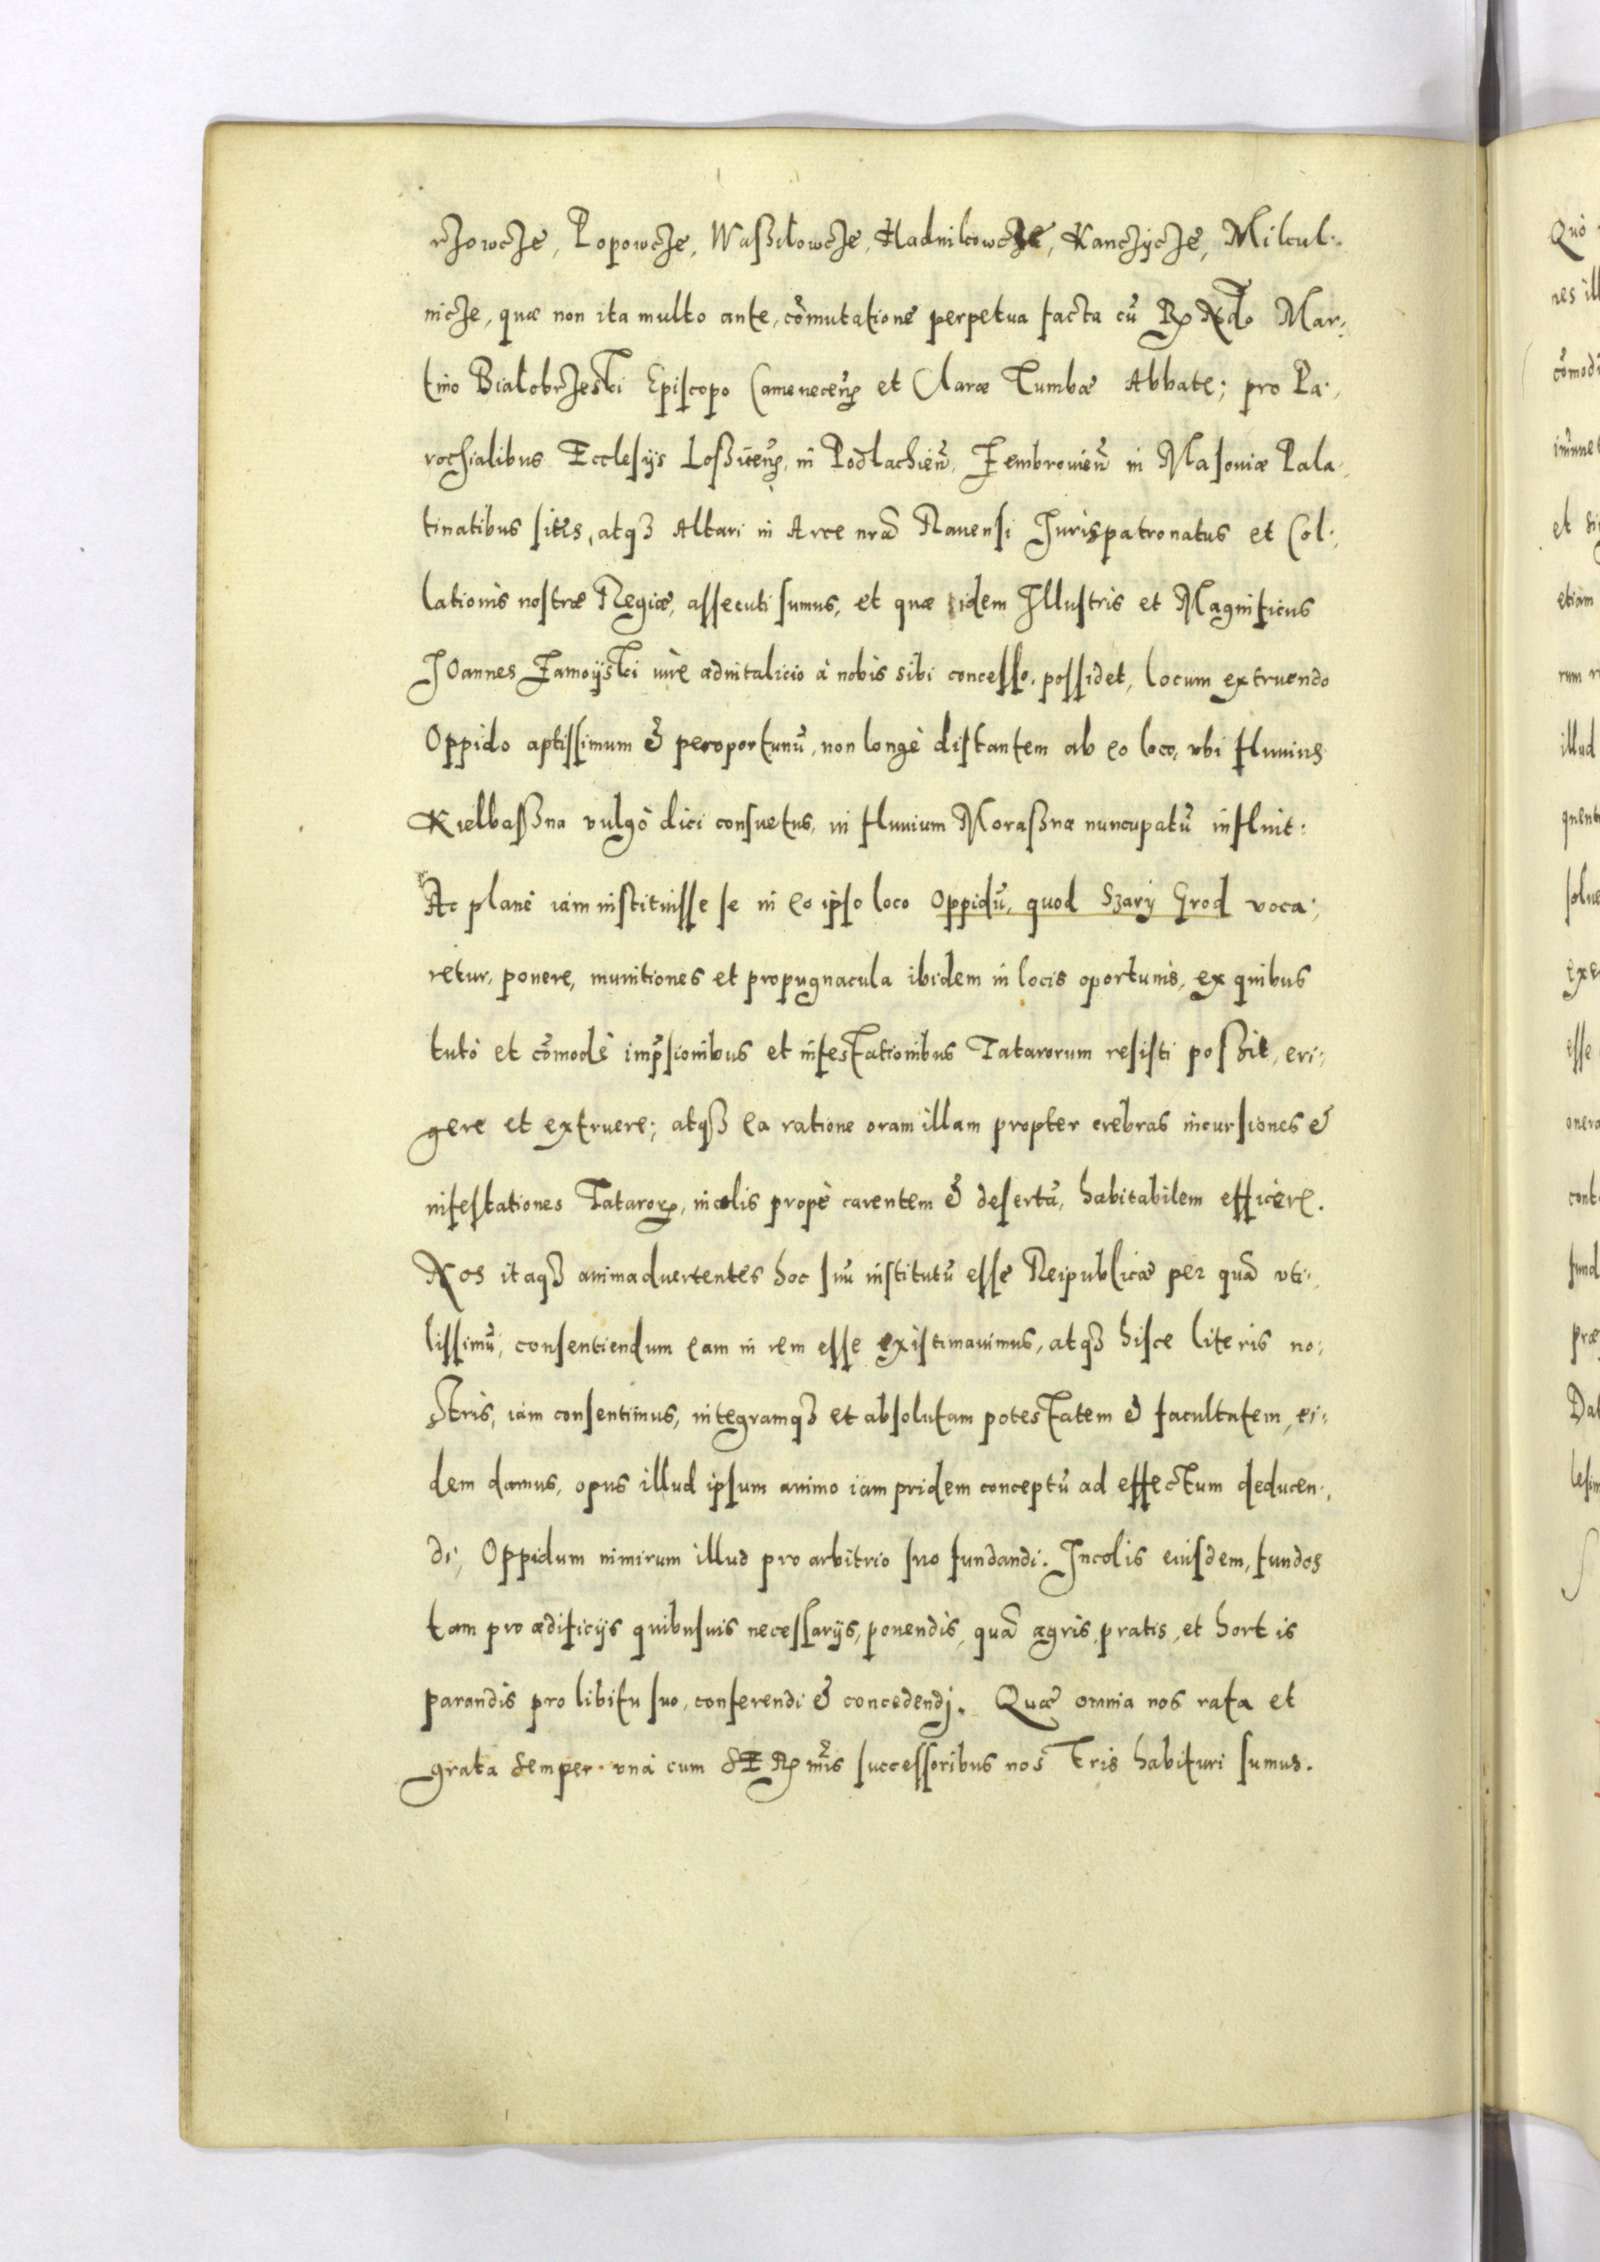 rzowcze, Popowcze, Waßilowcze, Hladnikowcze, Kanczycze, Mikul:
nicze, quæ non ita multo ante, cōmutatione perpetua facta cū Rndo Mar:
tino Bialobrzeski Episcopo Camenecen et Claræ Tumbæ Abbate; pro Pa:
rochialibus Ecclesijs Loßicen, in Podlachien, Zembrovien in Masoviæ Pala:
tinatibus sitis, atq3 Altari in Arce nrā Ravensi Jurispatronatus et Col:
lationis nostræ Regiæ, assecuti sumus, et quæ idem Illustris et Magnificus
Joannes Zamoyski iure advitalicio à nobis sibi concesso, possidet, locum extruendo
Oppido aptissimum & peroportunū, non longè distantem ab eo loco, vbi fluvius
Kielbaßna vulgò dici consuetus, in fluvium Moraßna nuncupatū influit:
Ac planè iam instituisse se in eo ipso loco Oppidū, quod Szary Grod voca:
retur, ponere, munitiones et propugnacula ibidem in locis oportunis, ex quibus
tutò et cōmodè imp̄sionibus et infestationibus Tatarorum resisti poßit, eri:
gere et extruere; atq3 ea ratione oram illam propter crebras incursiones &
infestationes Tataror, incolis propè carentem & desertā, habitabilem efficere.
Nos itaq3 animadvertentes hoc suū institutū esse Reipublicæ per quā vti:
lissimū, consentiendum eam in rem esse existimavimus, atq3 hisce literis no:
stris, iam consentimus, integramq3 et absolutam potestatem & facultatem, ei:
dem damus, opus illud ipsum animo iam pridem conceptū ad effectum deducen:
di; Oppidum nimirum illud pro arbitrio suo fundandi. Incolis eiusdem, fundos
tam pro ædificijs quibusvis necessarijs, ponendis, quā agris, pratis, et hortis
parandis pro libitu suo, conferendi & concedendj. Quæ omnia nos rata et
grata semper unà cum SERmis successoribus nostris habituri sumus.